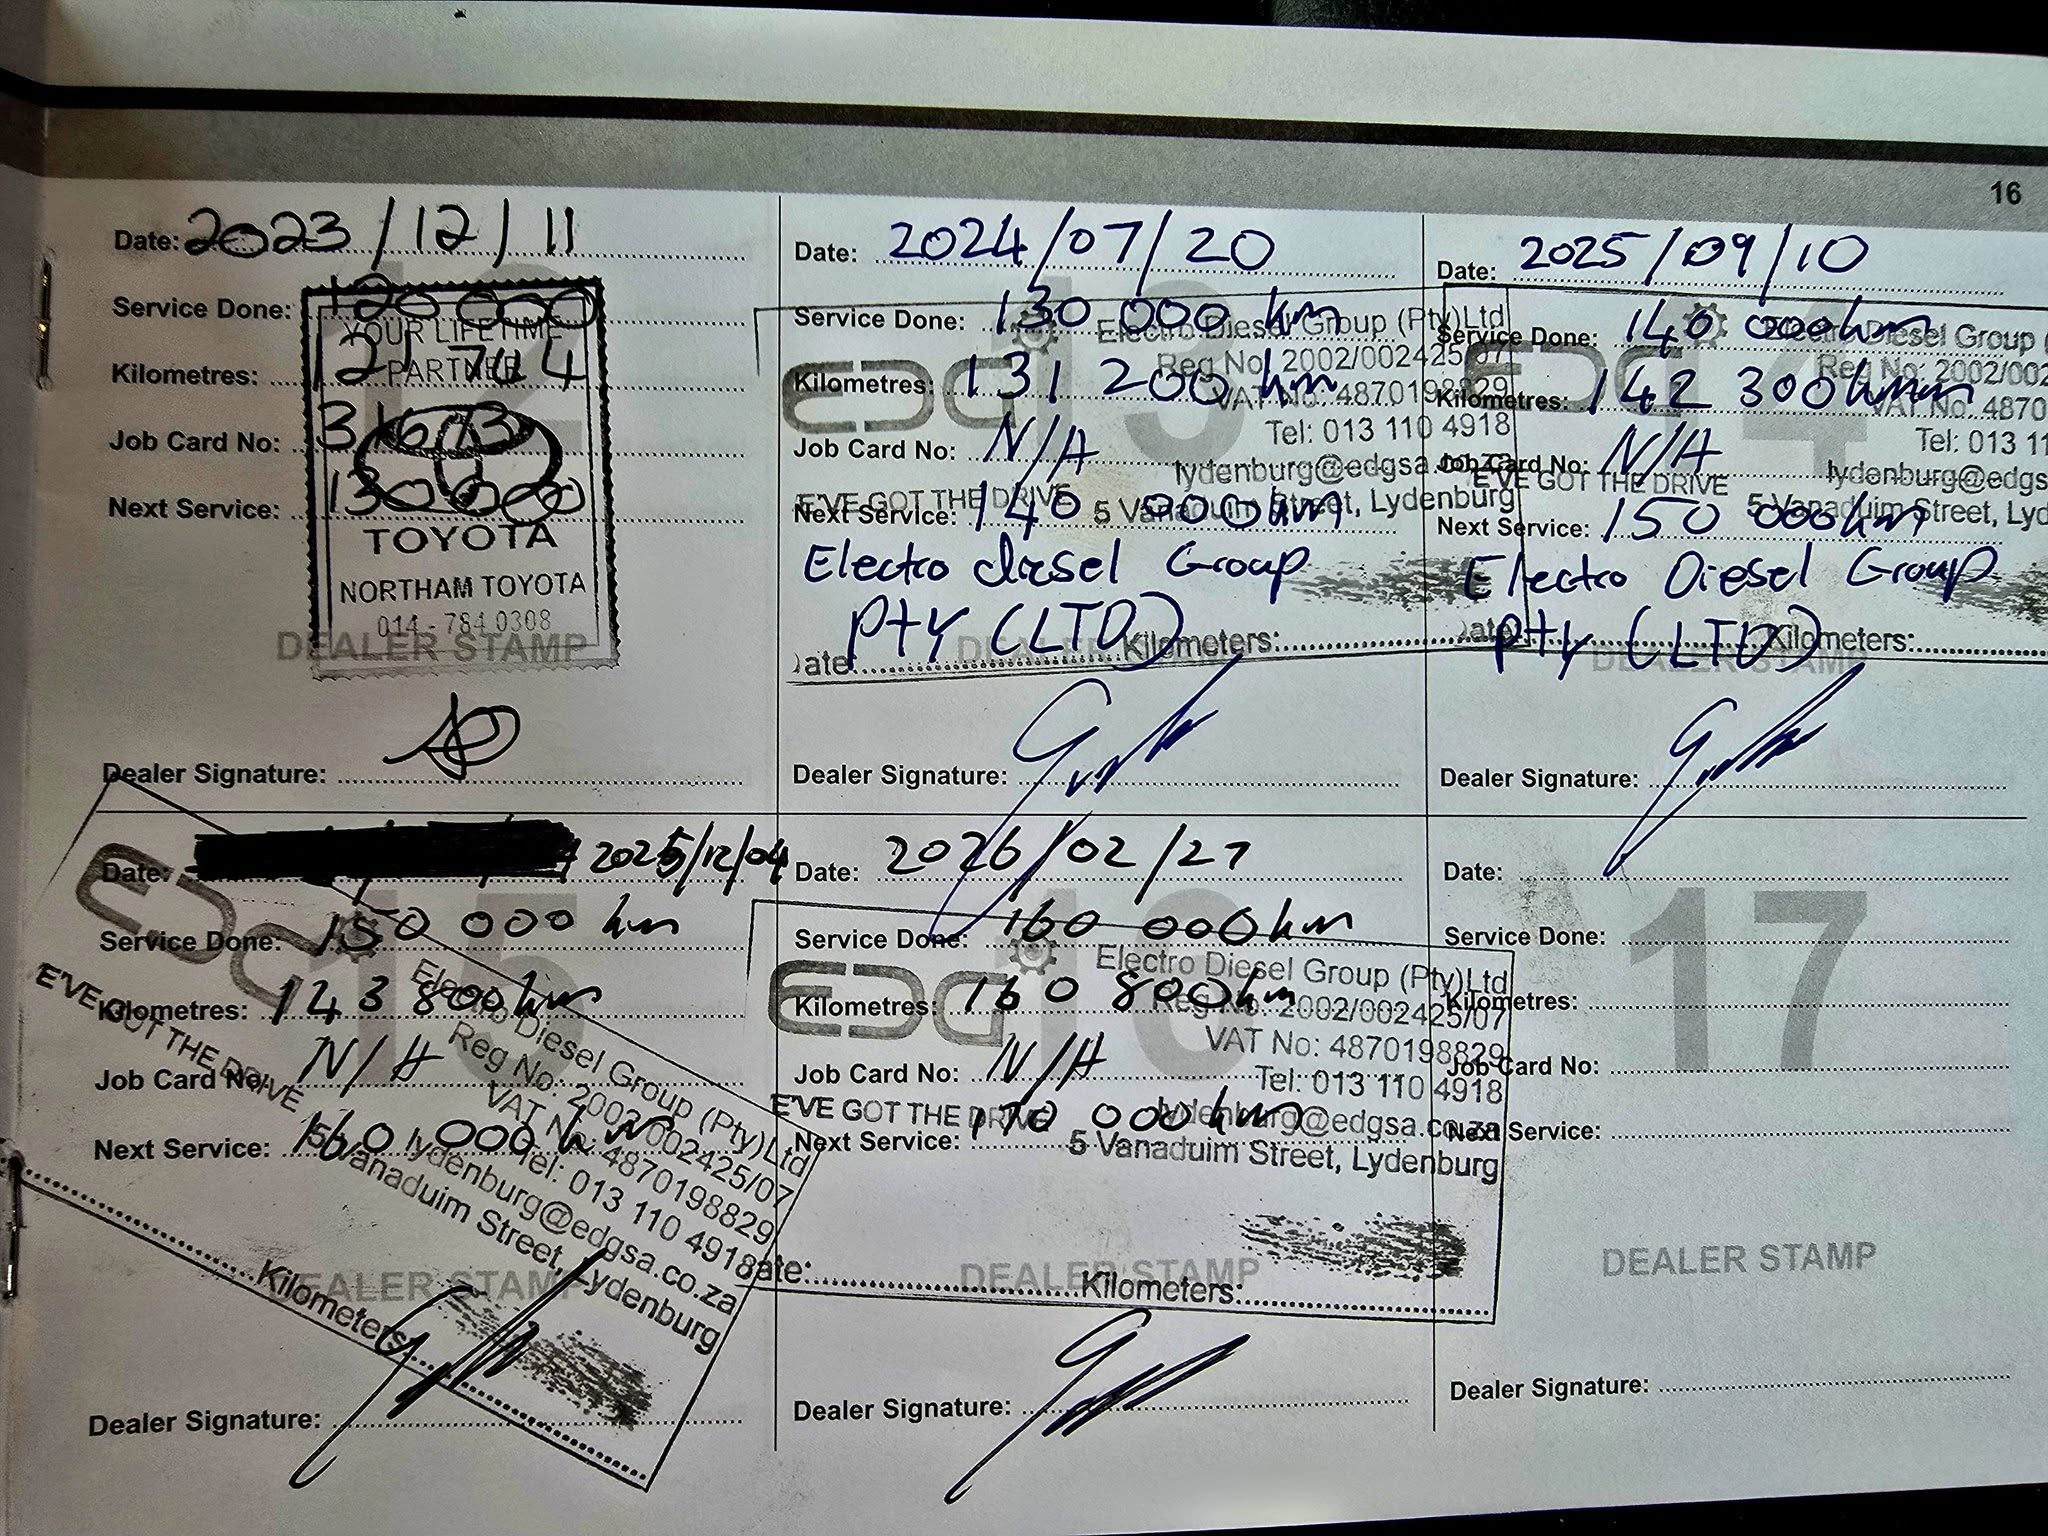 16
Date: 2023/12/11
Service Done: 120 000
Kilometres: 121 744
Job Card No:
Next Service: 130 000
YOUR LIFETIME
PARTNER
TOYOTA
NORTHAM TOYOTA
014 - 784 0308
DEALER STAMP
Dealer Signature:
Date: 2024/07/20
Service Done: 130 000 km
Kilometres: 131 200 km
Job Card No: N/A
Next Service: 140 000 km
Electro diesel Group
Pty (LTD)
13
EDG
Electro Diesel Group (Pty)Ltd
Reg No: 2002/002425/07
VAT No: 4870198829
Tel: 013 110 4918
lydenburg@edgsa.co.za
E'VE GOT THE DRIVE
5 Vanaduim Street, Lydenburg
ate: Kilometers:
DEALER STAMP
Dealer Signature:
Date: 2025/09/10
Service Done: 140 000 km
Kilometres: 142 300 km
Job Card No: N/A
Next Service: 150 000 km
Electro Diesel Group
Pty (LTD)
14
EDG
Electro Diesel Group (
Reg No: 2002/002
VAT No: 4870
Tel: 013 11
lydenburg@edgs
E'VE GOT THE DRIVE
5 Vanaduim Street, Lyd
ate: Kilometers:
DEALER STAMP
Dealer Signature:
Date: 2025/12/04
Service Done: 150 000 km
Kilometres: 143 800 km
Job Card No: N/A
Next Service: 160 000 km
15
EDG
E'VE GOT THE DRIVE
Electro Diesel Group (Pty)Ltd
Reg No: 2002/002425/07
VAT No: 4870198829
Tel: 013 110 4918
lydenburg@edgsa.co.za
5 Vanaduim Street, Lydenburg
Kilometers:
DEALER STAMP
Dealer Signature:
Date: 2026/02/27
Service Done: 160 000 km
Kilometres: 160 800 km
Job Card No: N/A
Next Service: 170 000 km
16
EDG
Electro Diesel Group (Pty)Ltd
Reg No: 2002/002425/07
VAT No: 4870198829
Tel: 013 110 4918
lydenburg@edgsa.co.za
E'VE GOT THE DRIVE
5 Vanaduim Street, Lydenburg
ate: Kilometers:
DEALER STAMP
Dealer Signature:
Date:
Service Done:
Kilometres:
Job Card No:
Next Service:
17
DEALER STAMP
Dealer Signature: